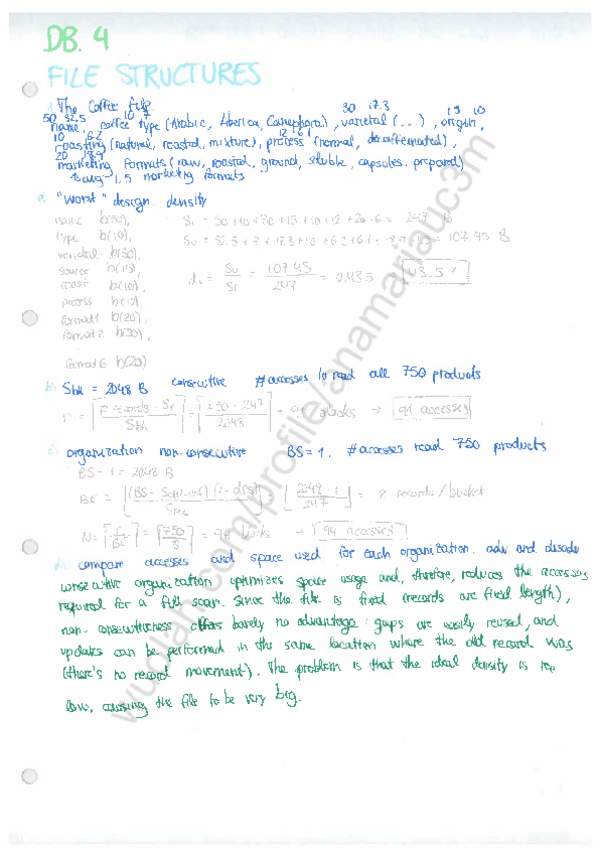 DB. 4
FILE STRUCTURES
The Coffee File
50 32.5 10 7 30 17.3 15 10
name, coffee type (Arabic, Liberica, Canephora), varietal (...), origin,
10 6.2 12 6.1
roasting (natural, roasted, mixture), process (normal, decaffeinated),
20
marketing formats (raw, roasted, ground, soluble, capsules, prepared)
avg 1.5 marketing formats
a) "worst" design density
name b(50),
type b(10),
varietal b(30),
source b(15),
roast b(10),
process b(12),
format1 b(20),
format2 b(20),
format6 b(20)
= 247 B
= 107.45 B
= 107.45 / 247 = 0.435 → 43.5%
b) Sbk = 2048 B consecutive #accesses to read all 750 products
blocks → accesses
c) organization non-consecutive BS=1. #accesses read 750 products
BS = 1 = 2048 B
= 8 records/bucket
= 94 → 94 accesses
d) compare accesses and space used for each organization. adv and disadv
consecutive organization optimizes space usage and, therefore, reduces the accesses
required for a full scan. Since the file is fixed (records are fixed length),
non-consecutiveness has barely no advantage: gaps are easily reused, and
updates can be performed in the same location where the old record was
(there's no record movement). The problem is that the ideal density is too
low, causing the file to be very big.
wuolah.com/profile/anamariauc3m